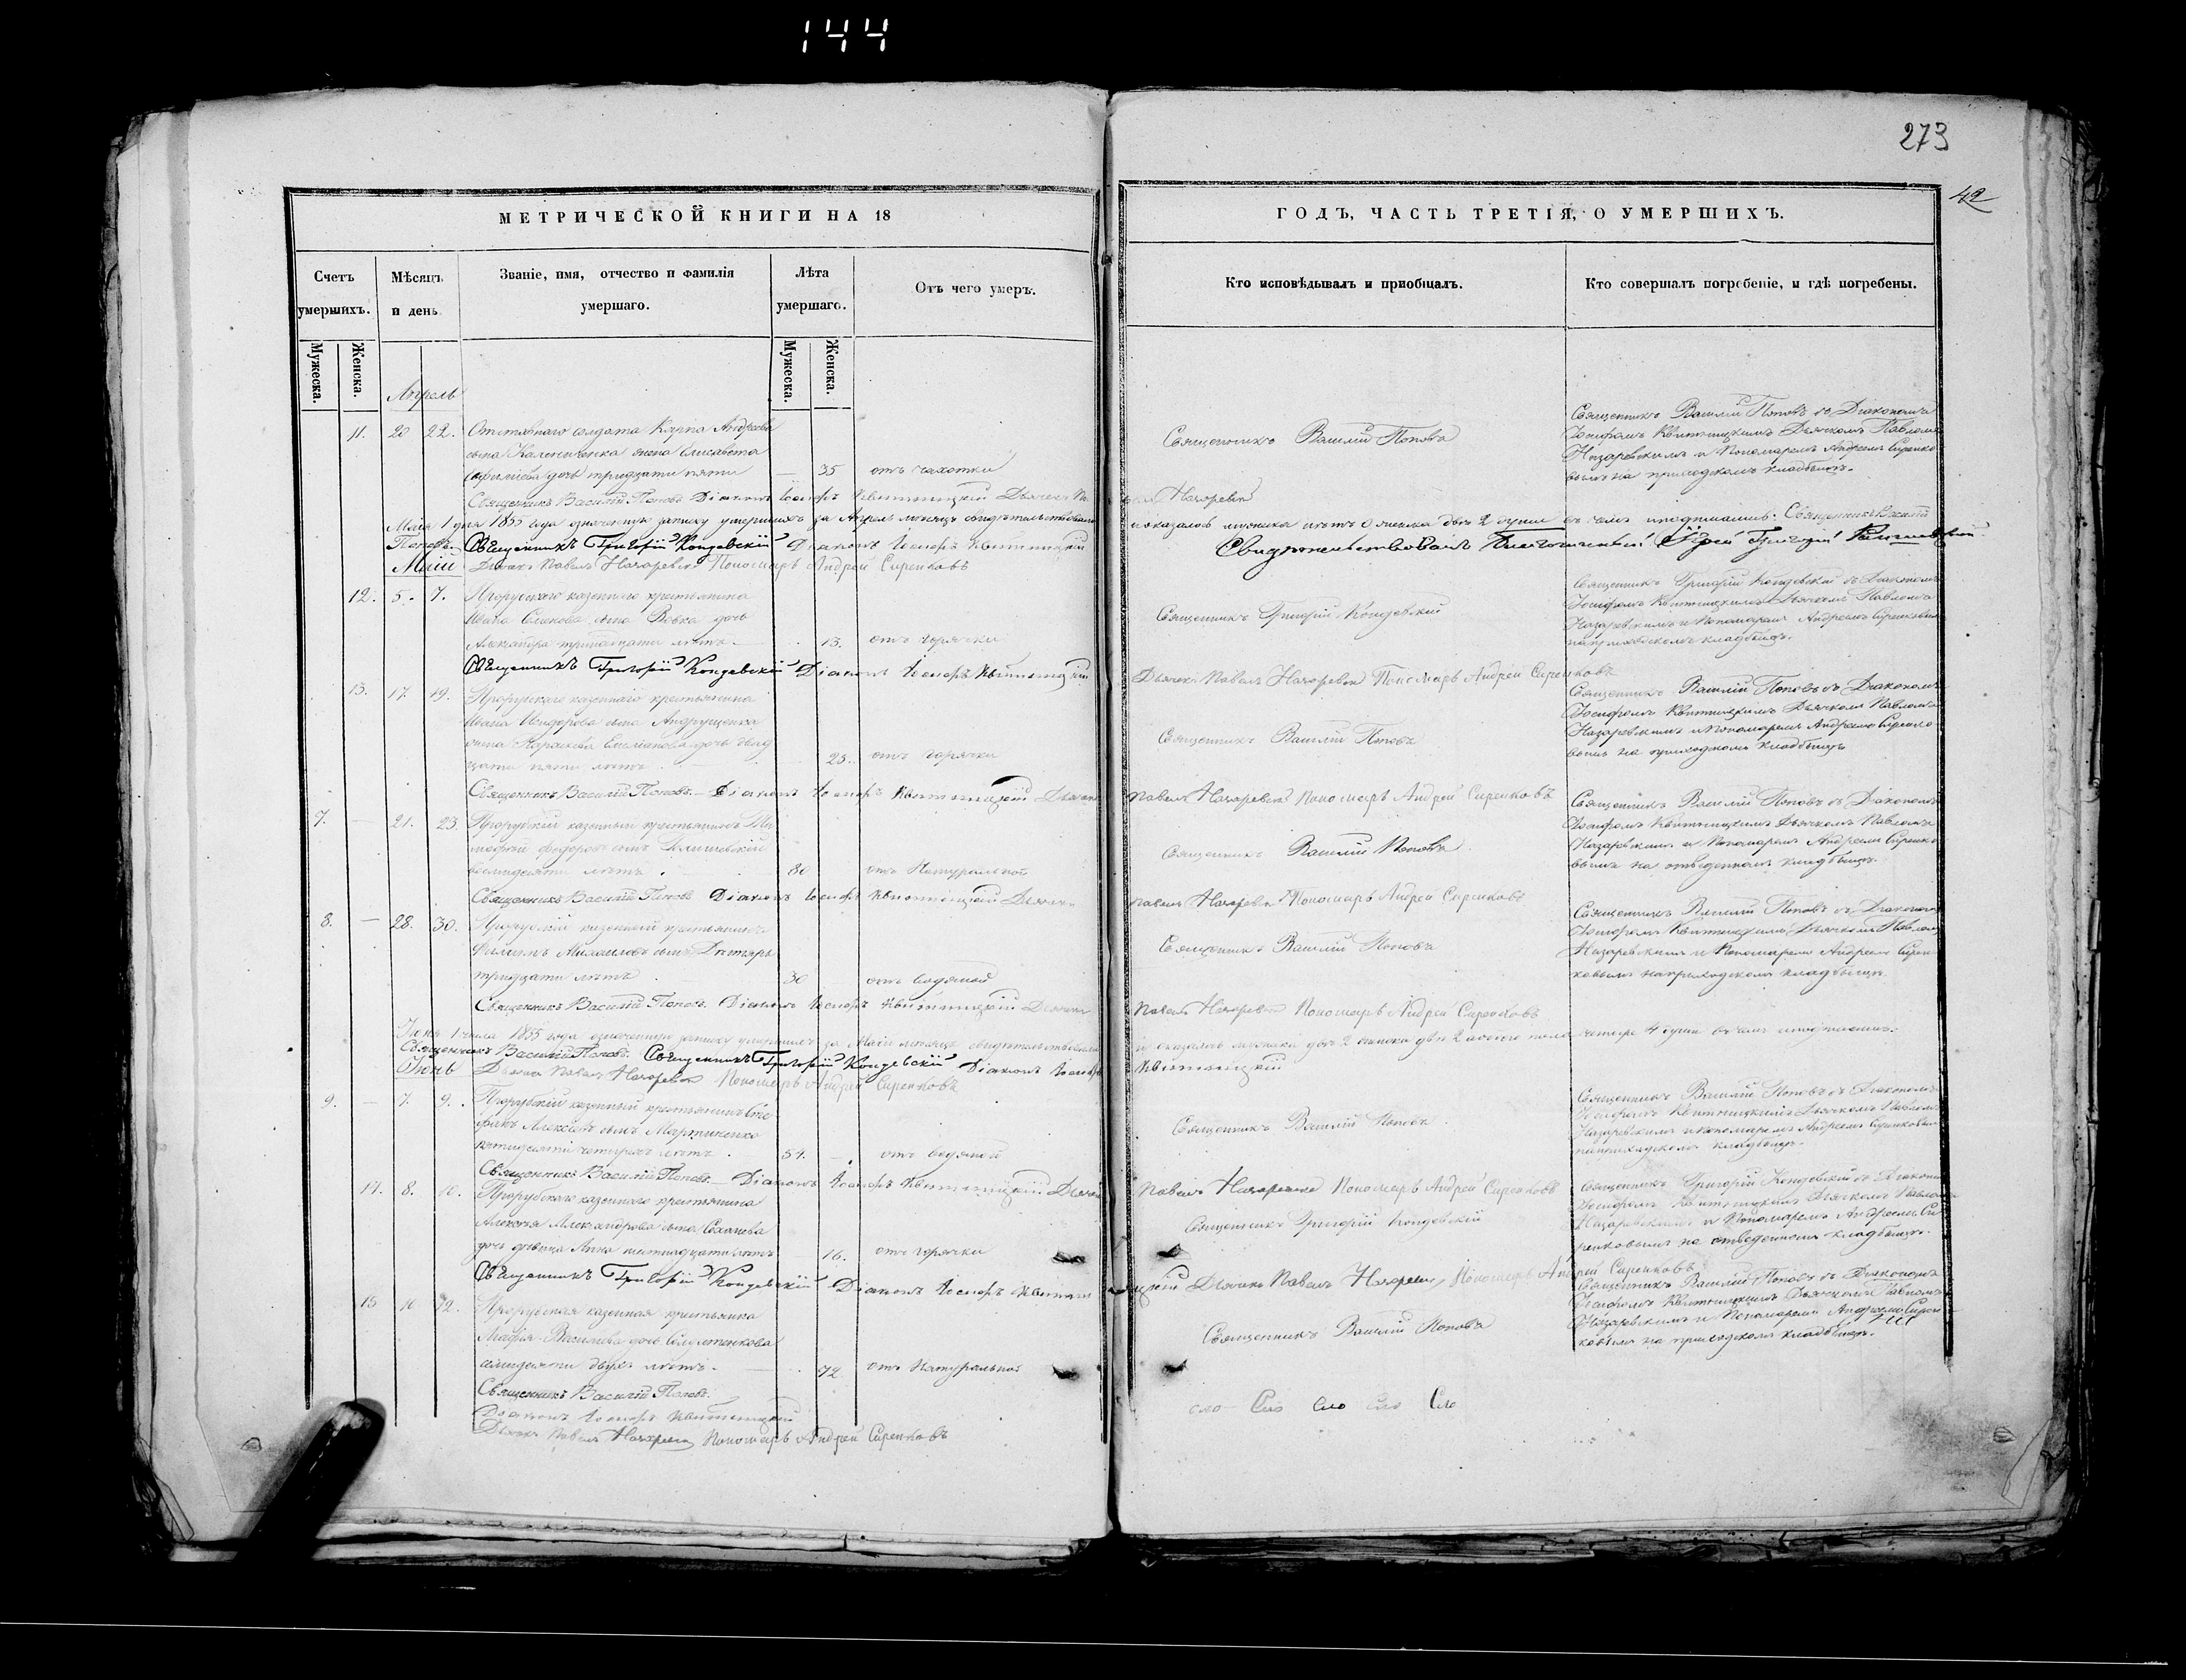 144
273
42
МЕТРИЧЕСКОЙ КНИГИ НА 18
ГОДЪ, ЧАСТЬ ТРЕТІЯ, О УМЕРШИХЪ.
Счетъ умершихъ.
Мѣсяцъ и день
Званіе, имя, отчество и фамилія умершаго.
Лѣта умершаго.
Отъ чего умеръ.
Кто исповѣдывалъ и пріобщалъ.
Кто совершалъ погребеніе, и гдѣ погребены.
Мужеска.
Женска.
Мужеска.
Женска.
Апрель
11. 20 22. Отставнаго солдата Карпа Андреева
сына жена Елисавета
дочь тридцати пяти — 35 отъ чахотки
Священникъ Василій Поповъ
Священникъ Василій Поповъ съ Діакономъ
Іосифомъ Квитницкимъ Дьячкомъ Павломъ
Назаревскимъ и Пономаремъ Андреемъ Сиренко
вымъ на приходскомъ кладбищѣ.
Священникъ Василій Поповъ Діаконъ Іосифъ Квитницкій Дьячекъ Павелъ Назаревскій
Мая 1 дня 1855 года означенную записку умершихъ за Апрель мѣсяцъ свидѣтельствовали
показалось мужеска нѣтъ 0 женска двѣ 2 души въ чемъ и подписались: Священникъ Василій
Поповъ. Священникъ Григорій Кондевскій Діаконъ Іосифъ Квитницкій
Свидѣтельствовалъ Благочинный Іерей Григорій
Маій Дьячекъ Павелъ Назаревскій Пономарь Андрей Сиренковъ
12. 5. 7. казеннаго крестьянина
Ивана сына дочь
Александра тринадцати лѣтъ. 13. отъ горячки
Священникъ Григорій Кондевскій
Священникъ Григорій Кондевскій съ Діакономъ
Іосифомъ Квитницкимъ Дьячкомъ Павломъ
Назаревскимъ и Пономаремъ Андреемъ Сиренковымъ
на приходскомъ кладбищѣ.
Священникъ Григорій Кондевскій Діаконъ Іосифъ Квитницкій
Дьячекъ Павелъ Назаревскій Пономарь Андрей Сиренковъ
13. 17. 19. казеннаго крестьянина
Ивана сына Андрущенка
жена дочь двад
цати пяти лѣтъ. 25. отъ горячки
Священникъ Василій Поповъ
Священникъ Василій Поповъ съ Діакономъ
Іосифомъ Квитницкимъ Дьячкомъ Павломъ
Назаревскимъ и Пономаремъ Андреемъ Сиренко
вымъ на приходскомъ кладбищѣ
Священникъ Василій Поповъ. Діаконъ Іосифъ Квитницкій Дьячекъ
Павелъ Назаревскій Пономарь Андрей Сиренковъ
7. — 21. 23. казенный крестьянинъ Ти
мофей Федоровъ сынъ
восмидесяти лѣтъ. 80 отъ Натуральной
Священникъ Василій Поповъ
Священникъ Василій Поповъ съ Діакономъ
Іосифомъ Квитницкимъ Дьячкомъ Павломъ
Назаревскимъ и Пономаремъ Андреемъ Сиренко
вымъ на отведенномъ кладбищѣ.
Священникъ Василій Поповъ Діаконъ Іосифъ Квитницкій Дьячекъ
Павелъ Назаревскій Пономарь Андрей Сиренковъ
8. — 28. 30. казенный крестьянинъ
Филипъ Михаиловъ сынъ
тридцати лѣтъ 30 отъ водяной
Священникъ Василій Поповъ
Священникъ Василій Поповъ съ Діакономъ
Іосифомъ Квитницкимъ Дьячкомъ Павломъ
Назаревскимъ и Пономаремъ Андреемъ Сирен
ковымъ на приходскомъ кладбищѣ
Священникъ Василій Поповъ. Діаконъ Іосифъ Квитницкій Дьячекъ
Павелъ Назаревскій Пономарь Андрей Сиренковъ
Іюня 1 числа 1855 года означенную записку умершихъ за Маій мѣсяцъ свидѣтельствовали
и оказалось мужеска двѣ 2 женска двѣ 2 обоего пола четыре 4 души въ чемъ и подписались.
Священникъ Василій Поповъ. Священникъ Григорій Кондевскій Діаконъ Іосифъ Квитницкій
Іюнь Дьячекъ Павелъ Назаревскій Пономарь Андрей Сиренковъ
9. — 7. 9. казенный крестьянинъ Сте
фанъ Алексѣевъ сынъ Мартиненко
пятидесяти четырехъ лѣтъ. 54. отъ водяной
Священникъ Василій Поповъ
Священникъ Василій Поповъ съ Діакономъ
Іосифомъ Квитницкимъ Дьячкомъ Павломъ
Назаревскимъ и Пономаремъ Андреемъ Сиренковымъ
на приходскомъ кладбищѣ.
Священникъ Василій Поповъ. Діаконъ Іосифъ Квитницкій Дьячекъ
Павелъ Назаревскій Пономарь Андрей Сиренковъ
14. 8. 10. казеннаго крестьянина
Алексѣя Александрова сына
дочь дѣвица Анна шестнадцати лѣтъ 16. отъ горячки
Священникъ Григорій Кондевскій
Священникъ Григорій Кондевскій съ Діакономъ
Іосифомъ Квитницкимъ Дьячкомъ Павломъ
Назаревскимъ и Пономаремъ Андреемъ Си
ренковымъ на отведенномъ кладбищѣ.
Священникъ Григорій Кондевскій Діаконъ Іосифъ Квитницкій Дьячекъ Павелъ Назаревскій Пономарь Андрей Сиренковъ
15 10 12. казенная крестьянка
Марія Василіева дочь
семидесяти двухъ лѣтъ. 72 отъ Натуральной
Священникъ Василій Поповъ
Священникъ Василій Поповъ съ Діакономъ
Іосифомъ Квитницкимъ Дьячкомъ Павломъ
Назаревскимъ и Пономаремъ Андреемъ Сирен
ковымъ на приходскомъ кладбищѣ.
Священникъ Василій Поповъ.
Діаконъ Іосифъ Квитницкій
Дьячекъ Павелъ Назаревскій Пономарь Андрей Сиренковъ